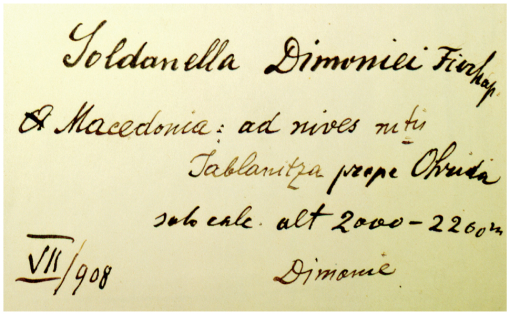 Soldanella Dimoniei Vierhap.
Macedonia: ad nives
Jablanitza prope Ohrida
solo calc. alt 2000-2200m
VII/908
Dimonie